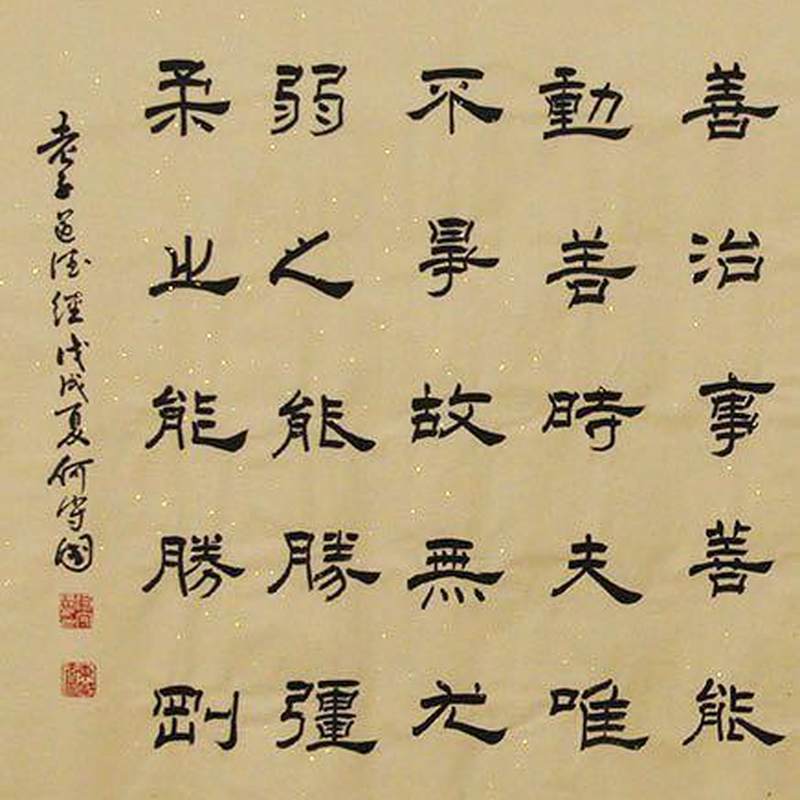 善治事善能
動善時夫唯
不爭故無尤
弱之能勝彊
柔之能勝剛
老子道德經戊戌夏何守國